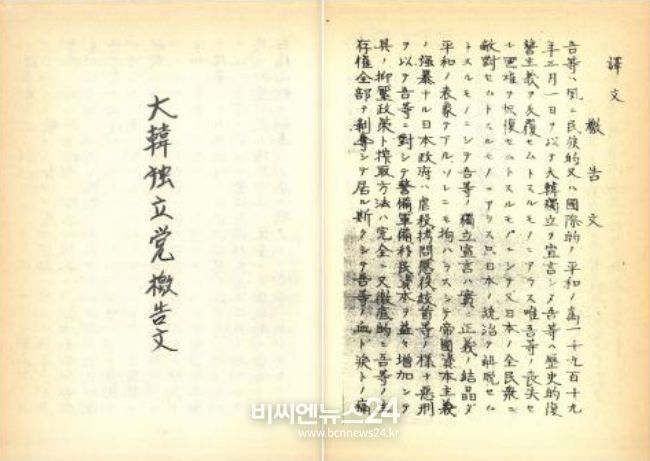 大韓独立党檄告文
譯文
檄告文
吾等ハ夙ニ民族的又ハ國際的ノ平和ノ爲一千九百十九
年三月一日ヲ以テ大韓獨立ヲ宣言シタ吾等ハ歴史的復
讐主義ヲ反復セムトスルモノニアラス唯吾等ノ喪失セ
ヲ恢復セムトスルモノニシテ又日本ノ全民衆ニ
敵對セムトスルモノニアラス只日本ノ統治ヲ解脱セム
トスルモノニシテ吾等ノ獨立宣言ハ實ニ正義ノ結晶ダ
平和ノ表象デアル ソレニモ拘ハラスシテ帝國資本主義
ノ强暴ナル日本政府ハ虐殺拷問惡役鼓首等ノ樣々惡刑
ヲ以テ吾等ニ對シテ警備軍備移民資本ヲ益々增加シテ
其ノ抑壓政策ト搾取方法ハ完全ニ又徹底的ニ吾等ノ生
存權全部ヲ剝奪シテ居ル斯クシテ吾等ノ血ト淚トノ痛
비씨엔뉴스24
www.bcnnews24.kr